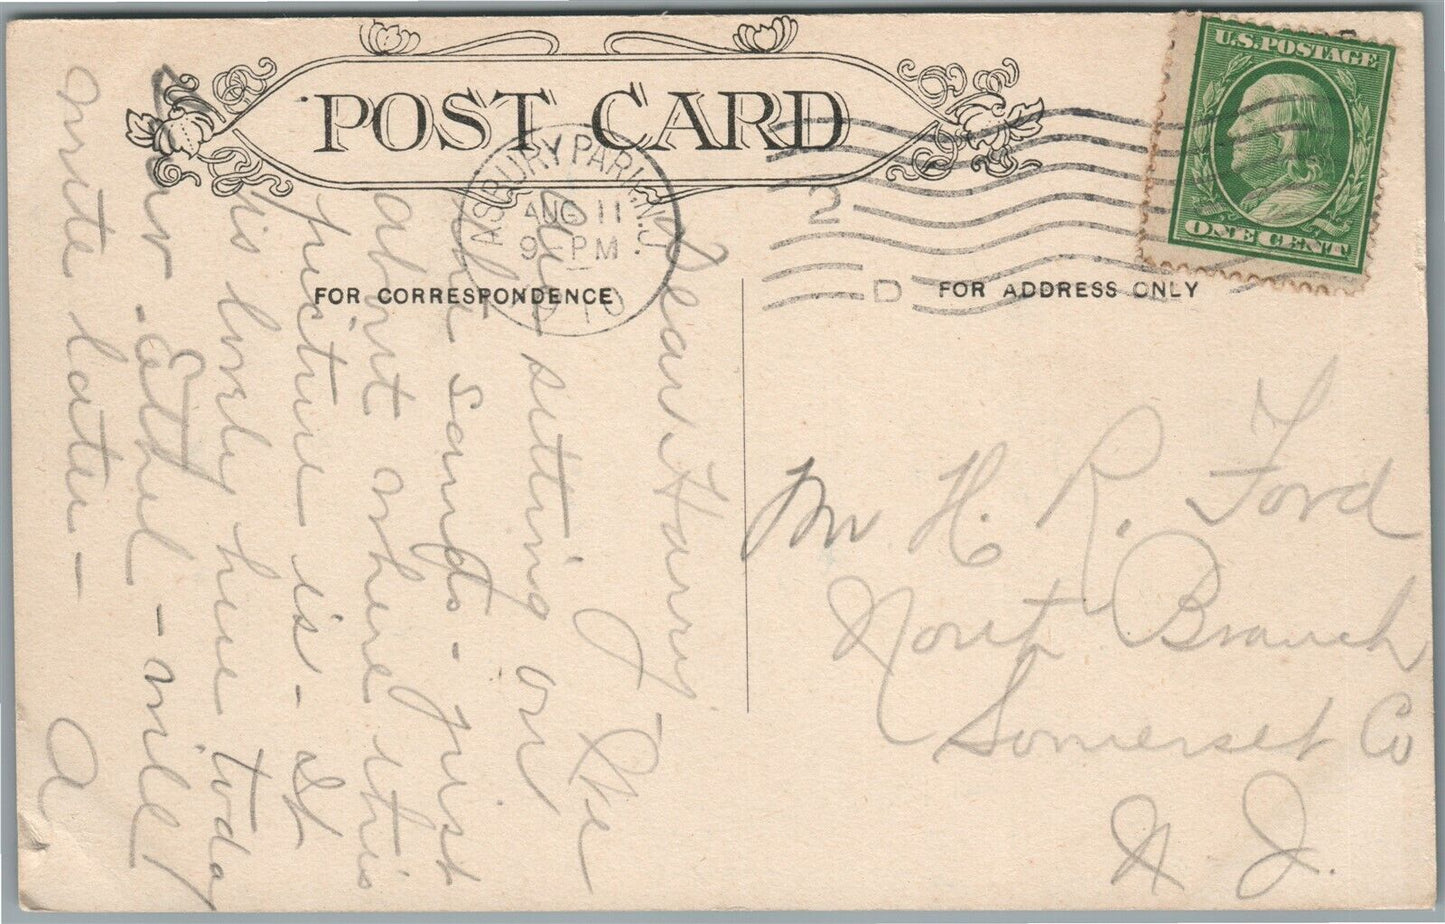 POST CARD
U.S. POSTAGE
ONE CENT
ASBURY PARK, N.J.
AUG 11
9 - PM
1910
2
D
FOR CORRESPONDENCE
FOR ADDRESS ONLY
Dear Harry
We
are sitting on
the sands - just
about where this
picture is - It
is lovely here today
- Ethel - will
write later -
A
Mr H. R. Ford
North Branch
Somerset Co
N. J.